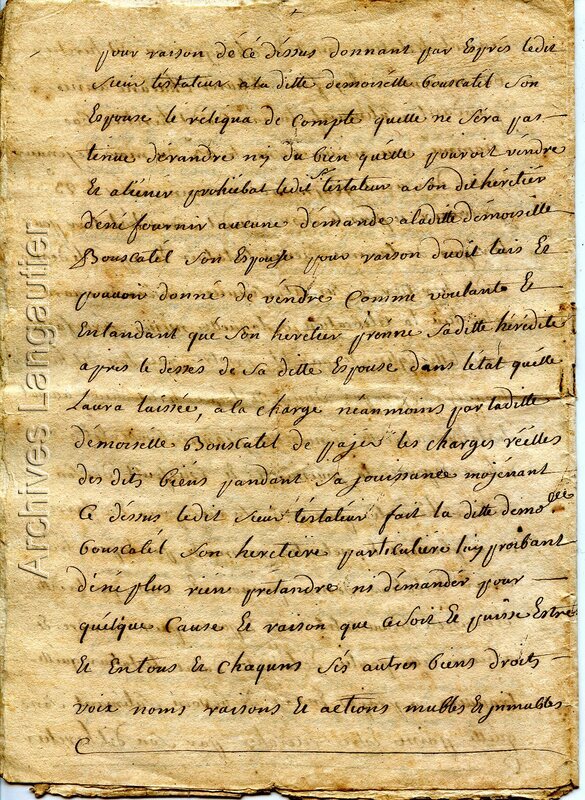 pour raison de cé déssus donnant par Esprés ledit
sieur testateur a la ditte demoiselle bouscatel son
Espouse le réliqua de Compte quelle ne séra pas
tenue dérandre ny du bien quélle pouroit véndre
Et aliéner prohiébat ledit Sr tértateur a Son dit héretier
déné fournir aucune démande aladitte démoiselle
Bouscatél Son Espouse pour raison dudit luis Et
pouvoir donné de véndre Comme voulant Et
Entandant qué Son héretier prenne Saditte hérédité
aprés le dessés de Sa ditte Espouse dans létat quélle
Laura laissée, a la charge néanmoins par laditte
démoiselle Bouscatél de pajér les charges réélles
des dits biéns pandant Sa jouissance mojénant
Ce déssus ledit Sieur téstateur fait la ditte démolle
bouscatél Son heretiére particuliere luy proibant
déné plus rién prétandre ni démandér pour
quélque Cause Et raison que ce Soit Et puisse Estre
Et Entous Et Chaquns Sés autres biens droits
voix noms raisons Et actions mubles Et jmmubles
Archives Langautier